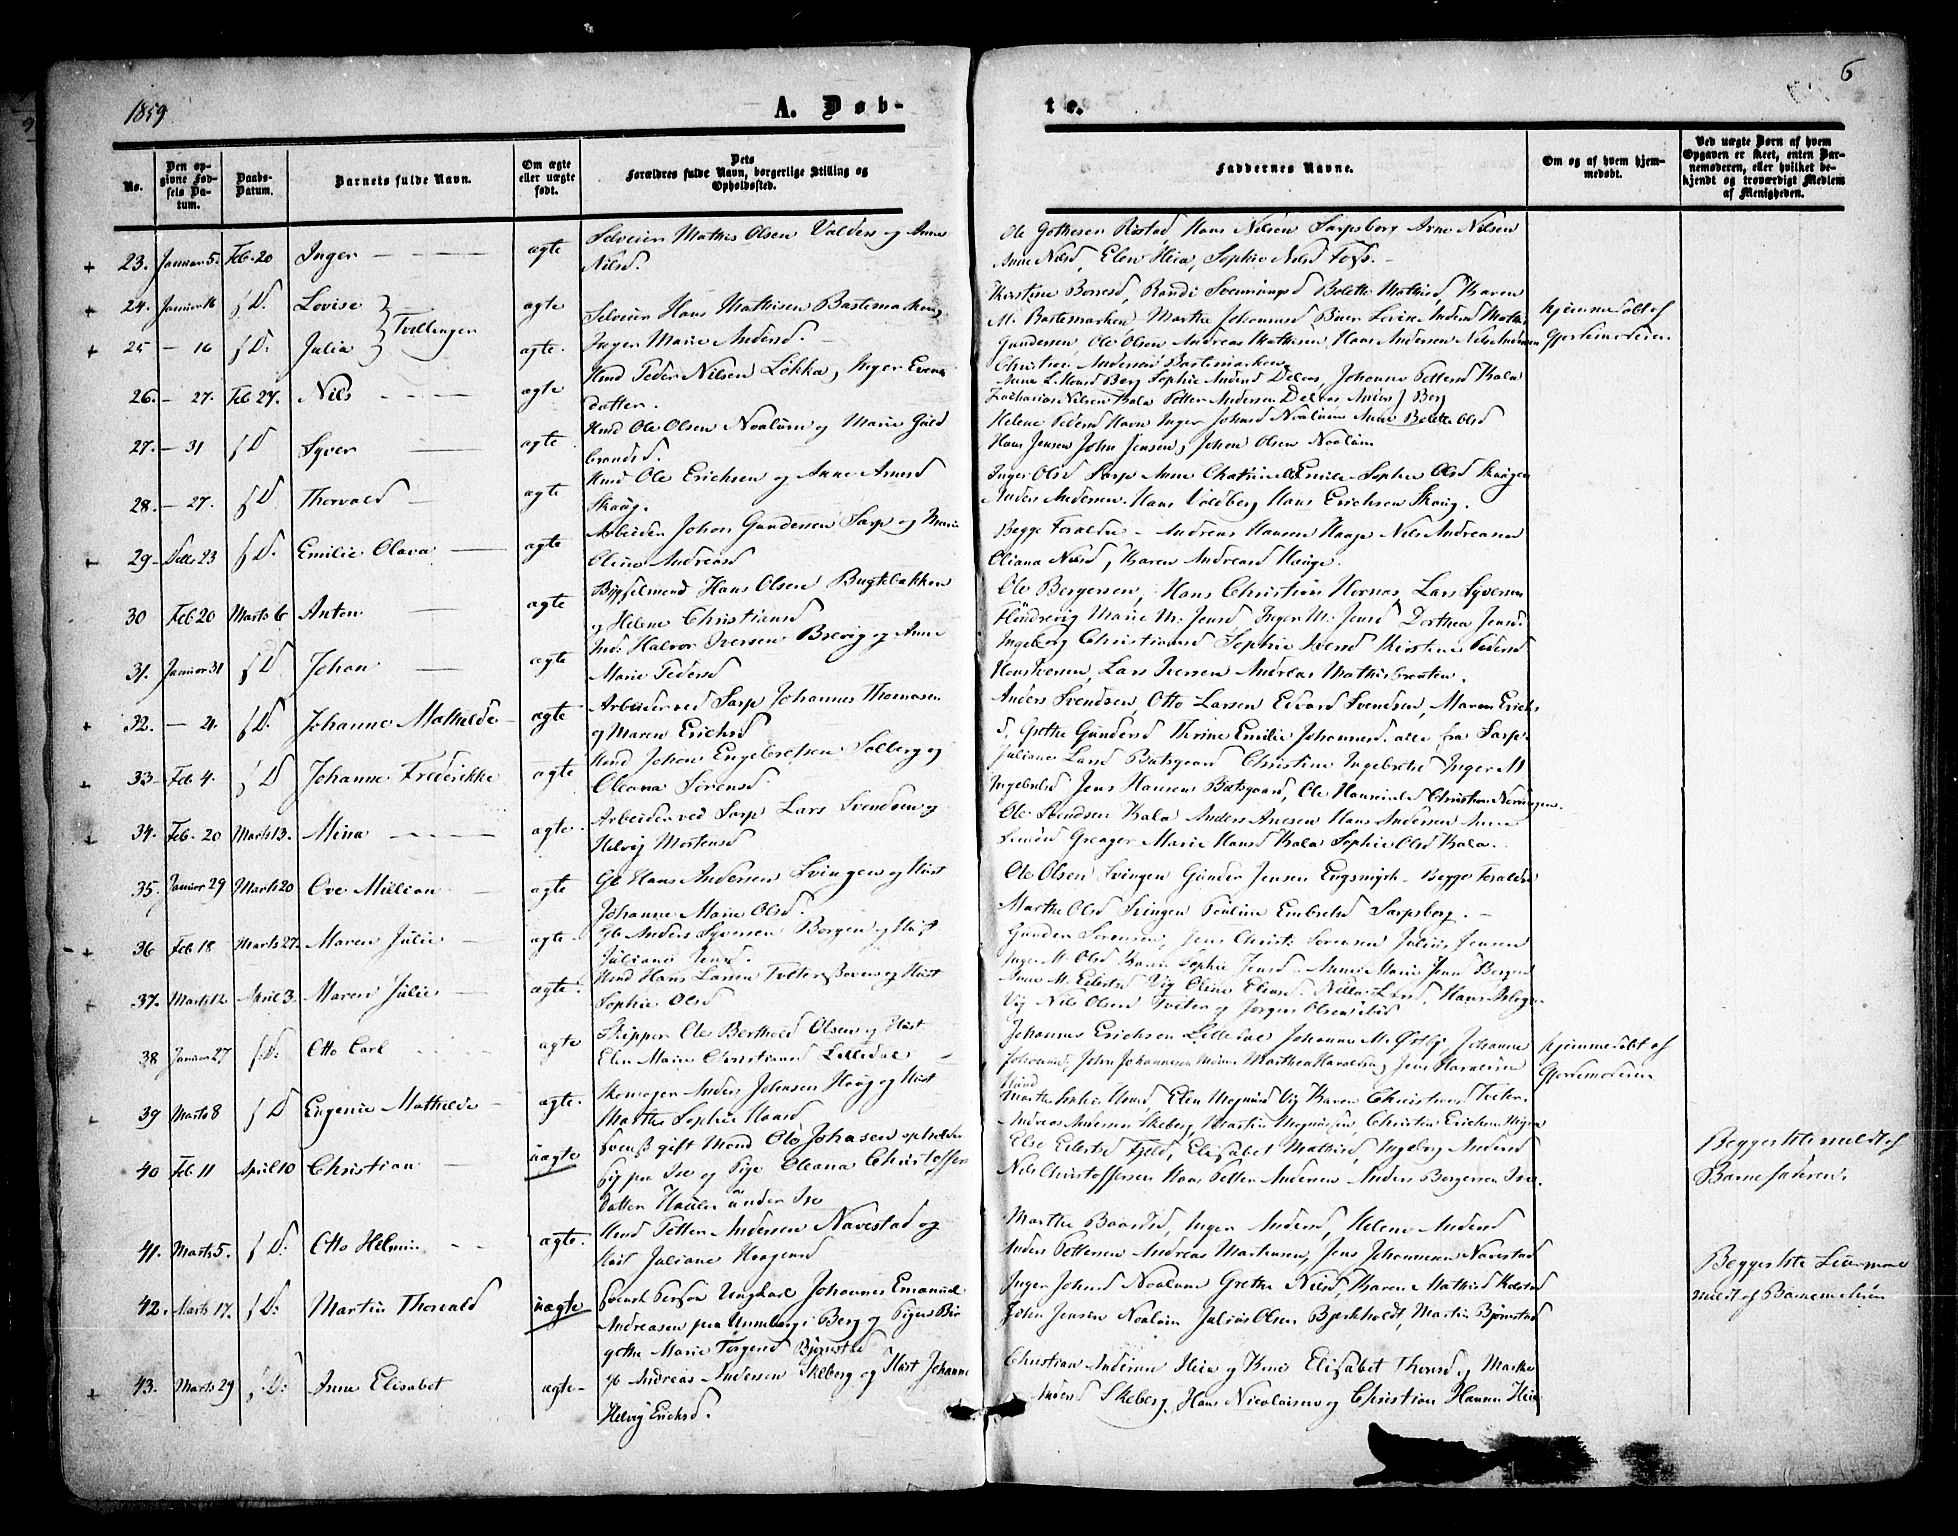 1859
A. Døb-
te.
6
No.
Den op-
givne Fød-
sels Da-
tum.
Daabs-
Datum.
Barnets fulde Navn.
Om ægte
eller uægte
født.
Dets
Forældres fulde Navn, borgerlige Stilling og
Opholdssted.
Faddernes Navne.
Om og af hvem hjem-
medøbt.
Ved uægte Børn af hvem
Opgaven er skeet, enten Bar-
nemoderen, eller hvilket be-
kjendt og troværdigt Medlem
af Menigheden.
23. Januar 5. Feb. 20 Inger ægte Selveier Mathis Olsen Valders og Anne
Nilsd.
Ole Gothesen Hans Nilsen Sarpsborg Arne Nilsen
Anne Nilsd, Elen Heia, Sophie Nilsd Foss.
24. Januar 16 f D. Lovise ægte Selveier Hans Mathisen Bastemarken,
Tvillinger
25 - 16 f D. Julia ægte. Inger Marie Andersd.
Kirstine Borresd, Randi Bolette Mathisd, Karen
M. Bastemarken Marthe Johannesd Lovise Andersd
Gundersen, Ole Olsen Andreas Mathisen, Hans Andersen Nils Andersen
Christian Andersen Bastemarken
hjemmedøbt af
Gjordemoderen
26. - 27. Feb 27. Nils ægte Hmd Peder Nilsen Løkka, Inger Evens
datter.
Anne Berg Sophie Andersd Delves, Johanne Pettersd Kala
Zacharias Nilsen Kala Petter Andersen Delves Anders J Berg
27. - 31 f D Syver ægte Hmd Ole Olsen Noalum og Marie Guld
brandsd.
Helene Pedersd Inger Johnsd Noalum Anne Bolette Olsd
Hans Jensen John Jensen, Johan Olsen Noalum
28. - 27. f D. Thorvald ægte Hmd Ole Erichsen og Anne Arnesd
Skaug.
Inger Olsd Sarp Anne Emilie Sophie Olsd Skaugen
Anders Andersen. Hans Voldberg Hans Erichsen Skaug.
29 - 23 f D. Emilie Olava ægte Arbeider Johan Gundersen Sarp og Marie
Oline Andreasd
Begge Foraldre - Andreas Hansen Hauge Nils Andreasen
Oliana Nilsd, Karen Andreasd Hauge.
30 Feb 20 Marts 6 Anton ægte Hans Olsen Bugtebakken
og Helene Christiansd
Ole Bergersen, Hans Christian Hornæs, Lars Syversen
Marie M. Jensd, Inger M. Jensd Dorthea Jensd
31. Januar 31 f D. Johan ægte Ind. Halvor Iversen Brevig og Anne
Marie Pedersd
Ingeborg Christiansd Sophie Iversd Kirstine Pedersd
Lars Iversen Andreas Mathisbraaten.
32. - 21. f D. Johanne Mathilde ægte Arbeider ved Sarp Johannes Thomasen
og Maren Erichsd
Anders Svendsen, Otto Larsen Edvard Svendsen, Maren Erichs
d, Grethe Gundersd Thrine Emilie Johannesd. alle fra Sarp.
33- Feb 4. f D Johanne Frederikke ægte Hmd Johan Engebretsen Solberg og
Oleana Sørensd
Juliane Larsd Batsgaard Christine Ingebretsd Inger M
Ingebretsd Jens Hansen Batsgaard, Ole Hansen Christian
34. Feb. 20 Marts 13. Mina ægte Arbeider ved Sarp Lars Svendsen og
Helvig Mortensd
Ole Svendsen Kala Anders Hans Andersen Anne
Greager Marie Hansd Kala Sophie Olsd Kala.
35. Januar 29 Marts 20 Ove Milian ægte Gb Hans Andersen Svingen og Hust
Johanne Marie Olsd.
Ole Olsen Svingen Gunder Jensen Engsmyh - Begge Foraldre
Marthe Olsd Svingen Pauline Embretsd Sarpsborg.
36 Feb 18 Marts 27. Maren Julie ægte Gb Anders Syversen Borgen og Hust
Juliane Jensd.
Gunder Sørensen, Jens Christ: Sørensen Julius Jensen
Inger M. Olsd Karen Sophie Jensd. Anne Marie Borgen
37. Marts 12 April 3. Maren Julie ægte. Hmd Hans Larsen Tveter og Hust
Sophie Olsd
Anne M. Eilertsd Vig Oline Eliasd. Larsd, Hans
Vig Nils Olsen Tveter og Jørgen Olsen ibid
38 Januar 27 f. D. Otto Carl ægte Skipper Ole Berthold Olsen og Hust
Elen Marie Christiansd Lilledal
Johannes Erichsen Lilledal Johanne M. Østby, Johanne
Johansd, John Johannesen Jens Haraldsen
hjemmedøbt af
Gjordemoderen
39 Marts 8 f D Eugenie Mathilde ægte. Skomager Anders Johnsen Haug og Hust
Marthe Sophie Hansd
Elen Magnusd Vig Karen Christiansd Tveter.
Andreas Andersen Skeberg, Martin Magnussen, Christian Erichsen
40 Feb 11 April 10 Christian uægte Svensk gift Mand Ole Johasen opholder
sig paa Ise og Pige Oleana Christoffers
datter under Ise
Else Eilertsd Fjeld, Elisabet Mathisd, Ingeborg Andersd
Nils Christoffersen Hans Petter Andersen Anders Bergersen Ise.
Begges 1ste meldt af
Barnefaderen.
41. Marts 5. f D. Otto Helmin ægte. Hmd Petter Andersen Navestad og
Hust Juliane Haagensd
Marthe Baardsd, Inger Andersd, Helene Andersd
Anders Pettersen Andreas Martinsen, Jens Johannesen Navestad
42. Marts 17. f D. Martin Thorvald uægte Svensk Person Ungkarl Johannes Emanuel
Andreasen paa i Berg og Pigen Bir
gethe Marie Torgersd Bjørnstad
Inger Johnsd Noalum Grethe Nilsd, Karen Mathisd
John Jensen Noalum Julius Olsen Bjerkholdt, Martin Bjørnstad
Begges 1ste
meldt af Barnemoderen
43. Marts 29 f. D. Anne Elisabet ægte- Gb Andreas Andersen Skeberg og Hust Johanne
Helvig Erichsd.
Christian Andersen Heia og Kone Elisabet Thorsd, og Marthe
Andersd Skeberg, Hans Nicolaisen og Christian Hansen Heia